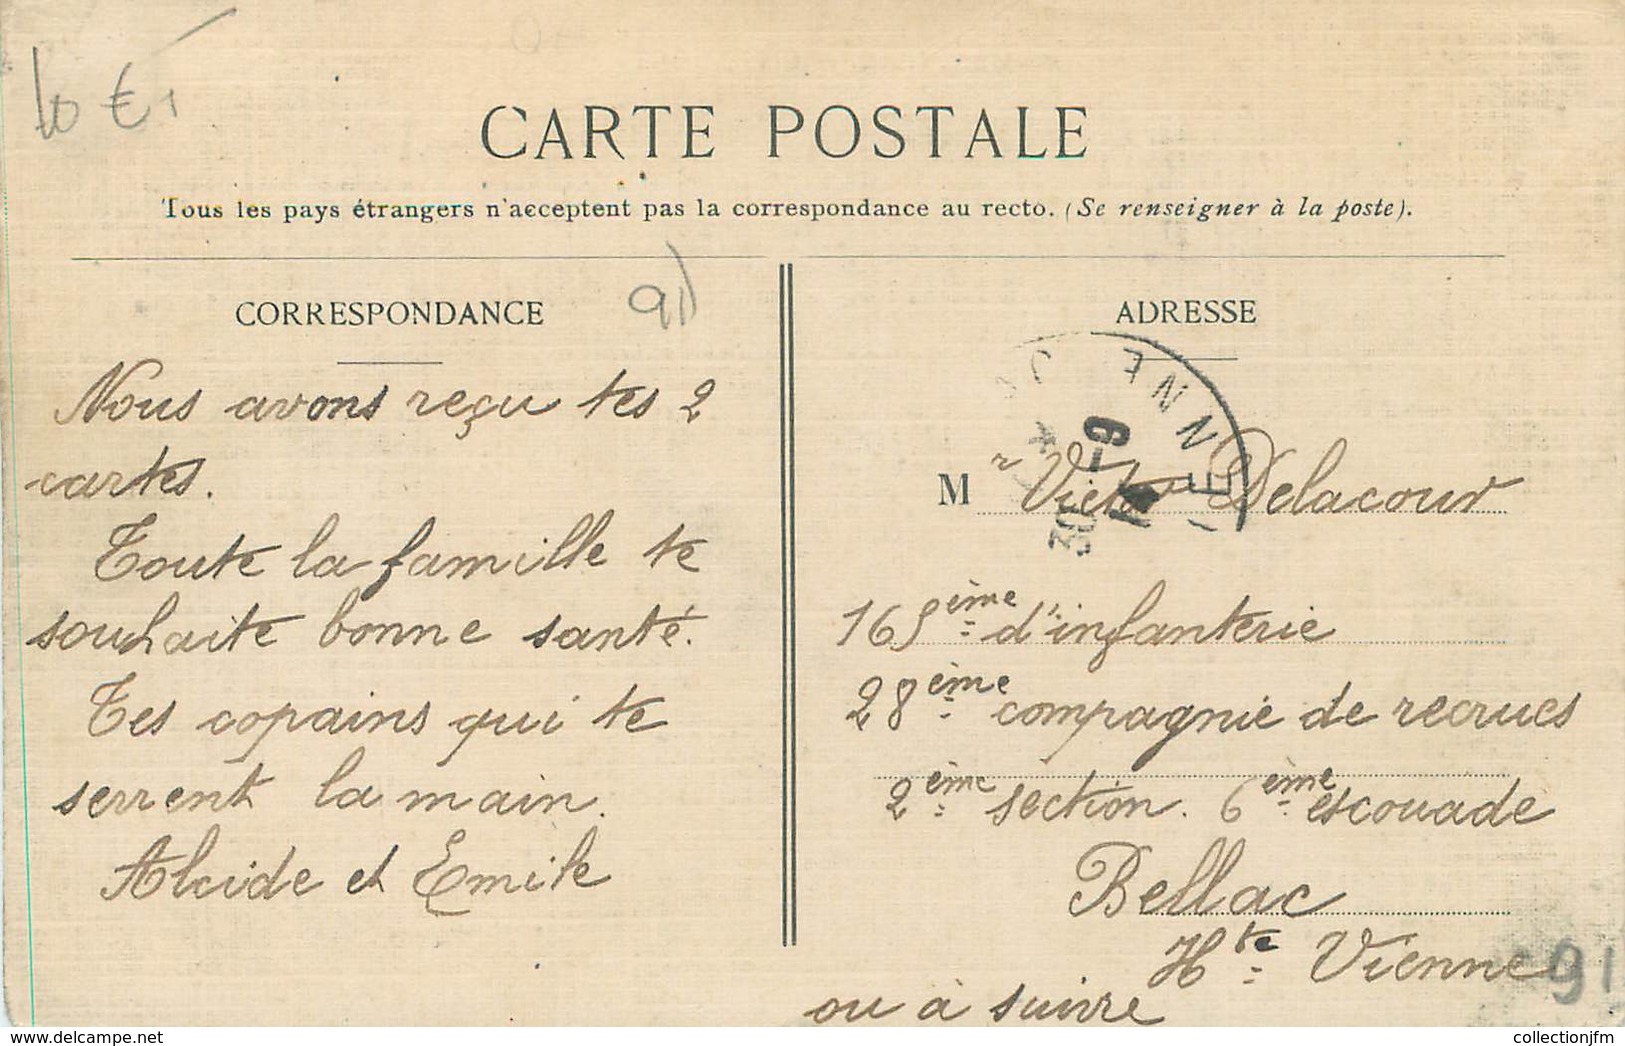 10 €
CARTE POSTALE
Tous les pays étrangers n'acceptent pas la correspondance au recto. (Se renseigner à la poste).
91
CORRESPONDANCE
Nous avons reçu tes 2
cartes.
Toute la famille te
souhaite bonne santé.
Tes copains qui te
serrent la main.
Alcide et Emile
ADRESSE
ENNE
30 -9
14
Mr Victor Delacour
165ème d'infanterie
28ème compagnie de recrues
2ème section. 6ème escouade
Bellac
Hte Vienne
ou à suivre
91
delcampe.net
collectionjfm